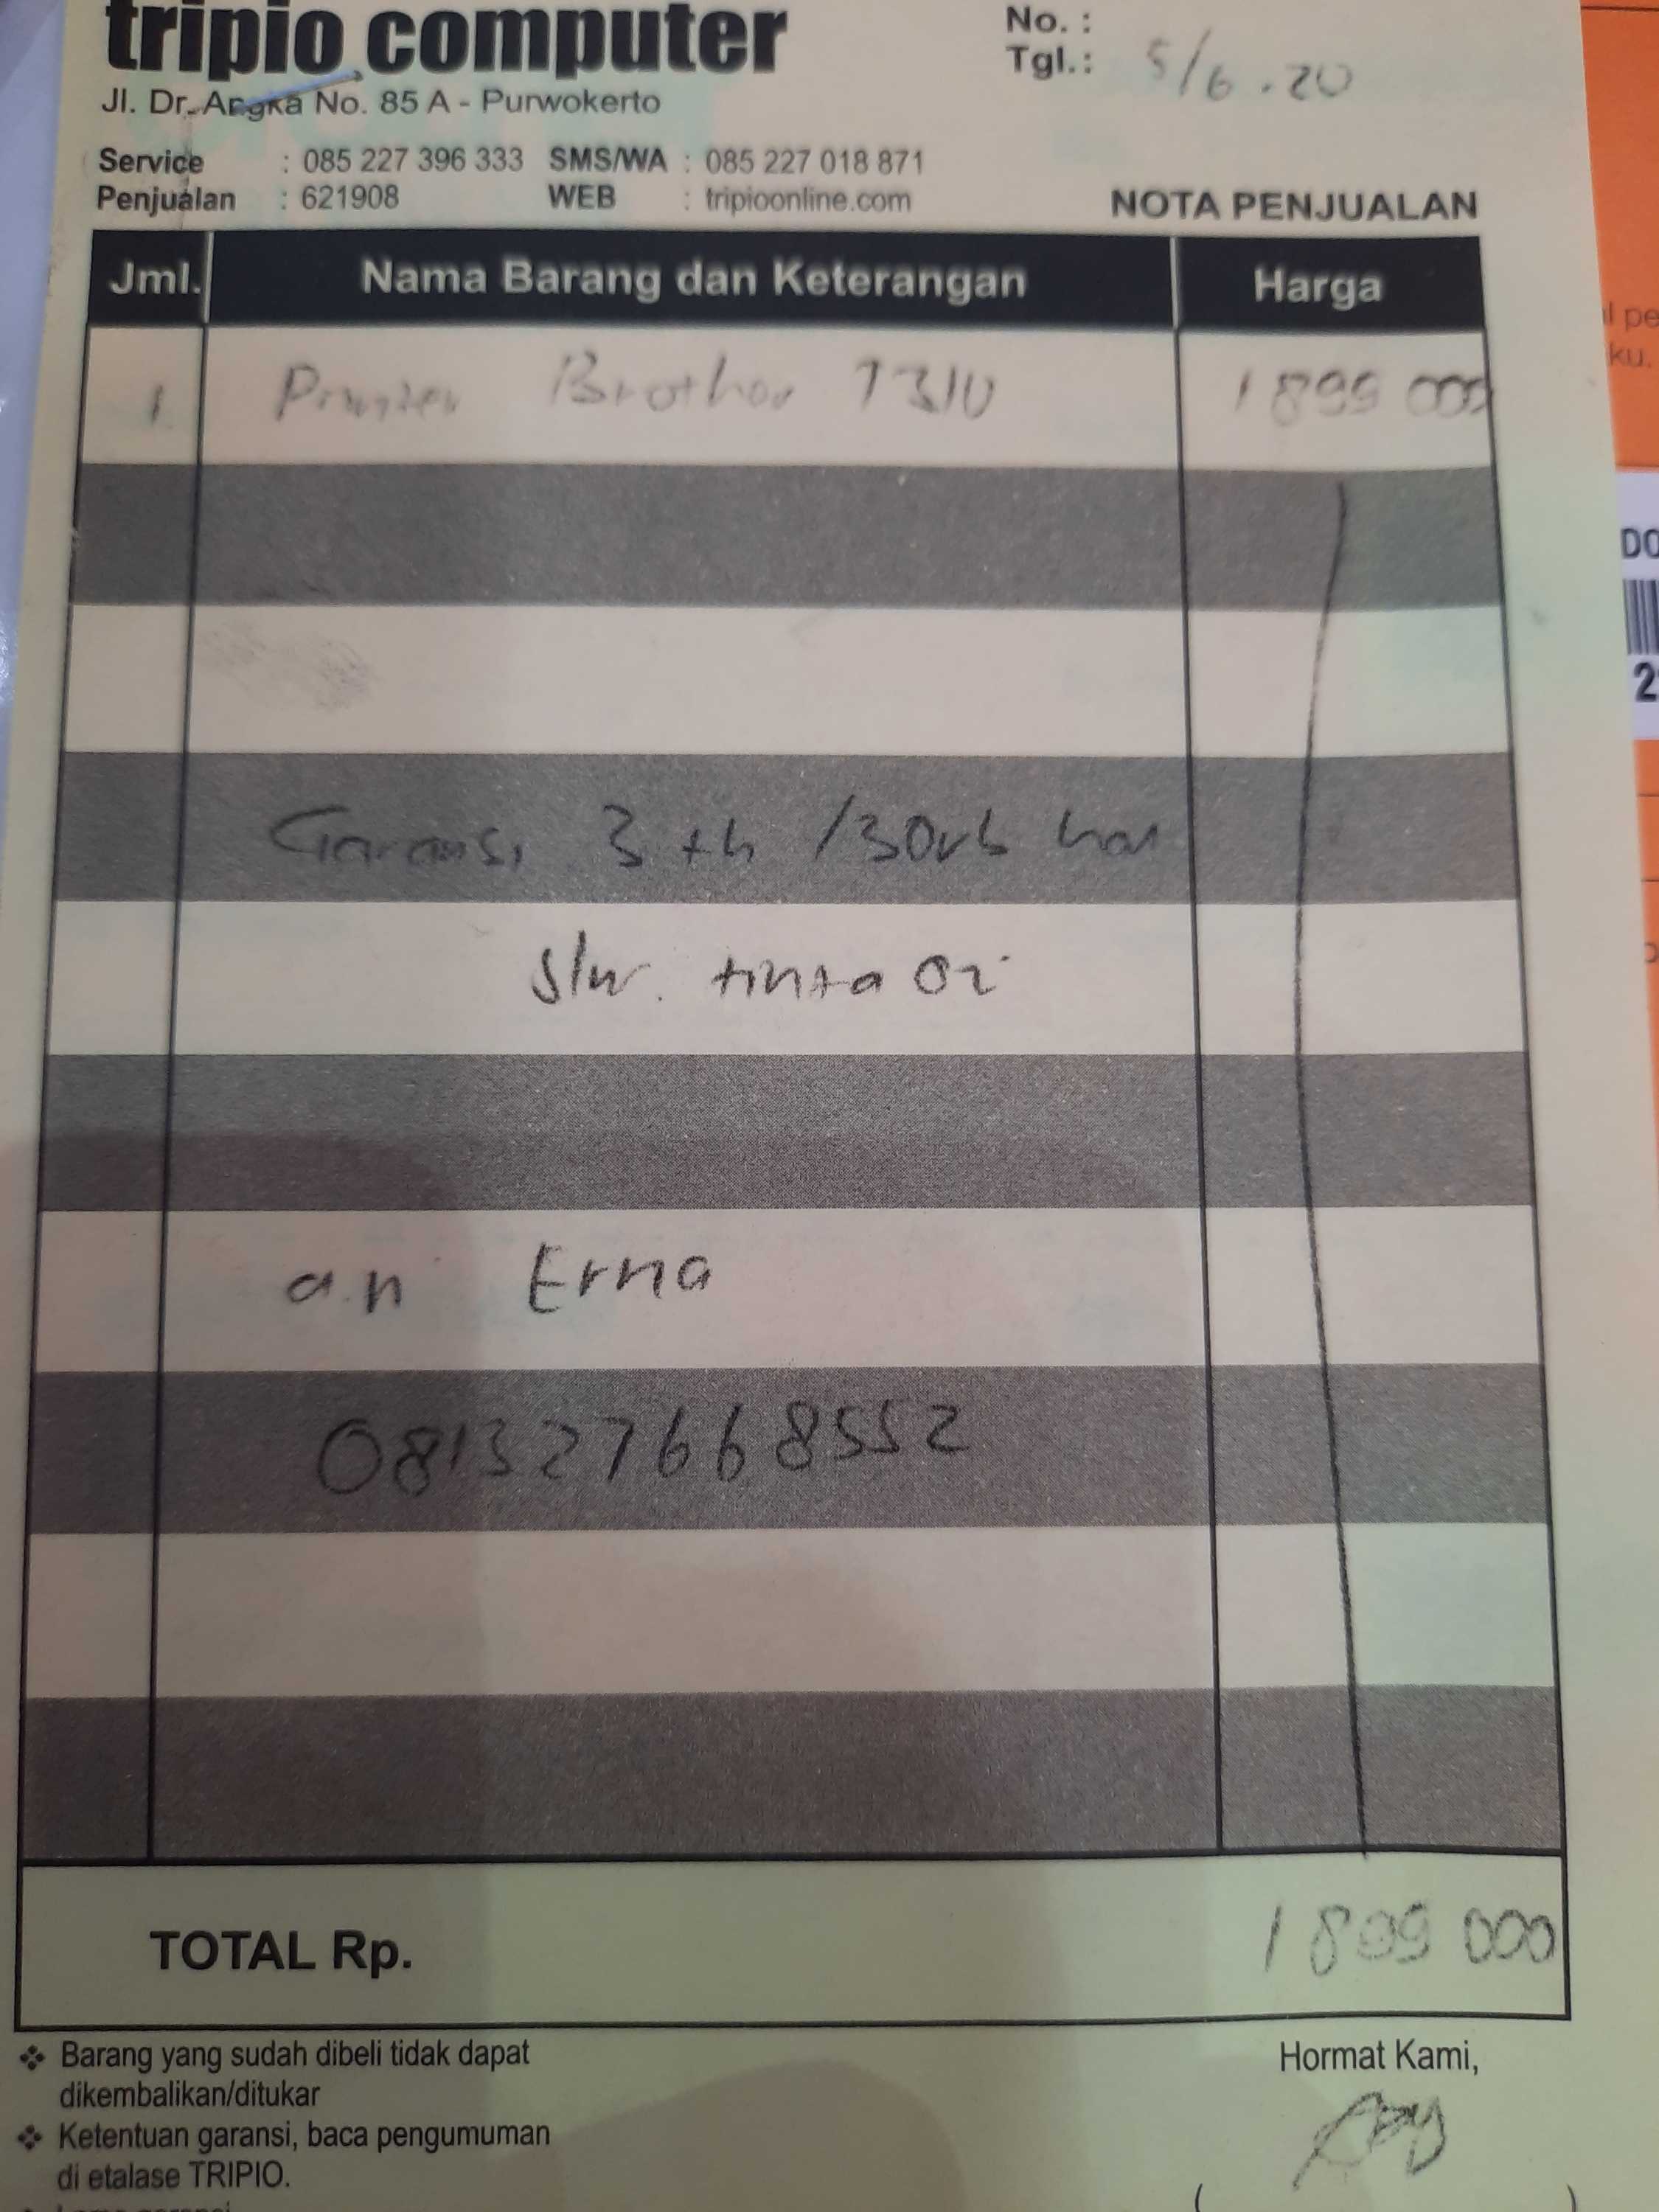 tripio computer
No. :
Tgl.: 5/6.20
Jl. Dr. Angka No. 85 A - Purwokerto
Service : 085 227 396 333 SMS/WA : 085 227 018 871
Penjualan : 621908 WEB : tripioonline.com
NOTA PENJUALAN
Jml. Nama Barang dan Keterangan Harga
1 Printer Brother T310 1 899 000
Garansi 3 th / 30rb hal
tinta ori
a.n Erna
081327668552
TOTAL Rp. 1 899 000
❖ Barang yang sudah dibeli tidak dapat
dikembalikan/ditukar
❖ Ketentuan garansi, baca pengumuman
di etalase TRIPIO.
Hormat Kami,
l pe
ku.
DO
2